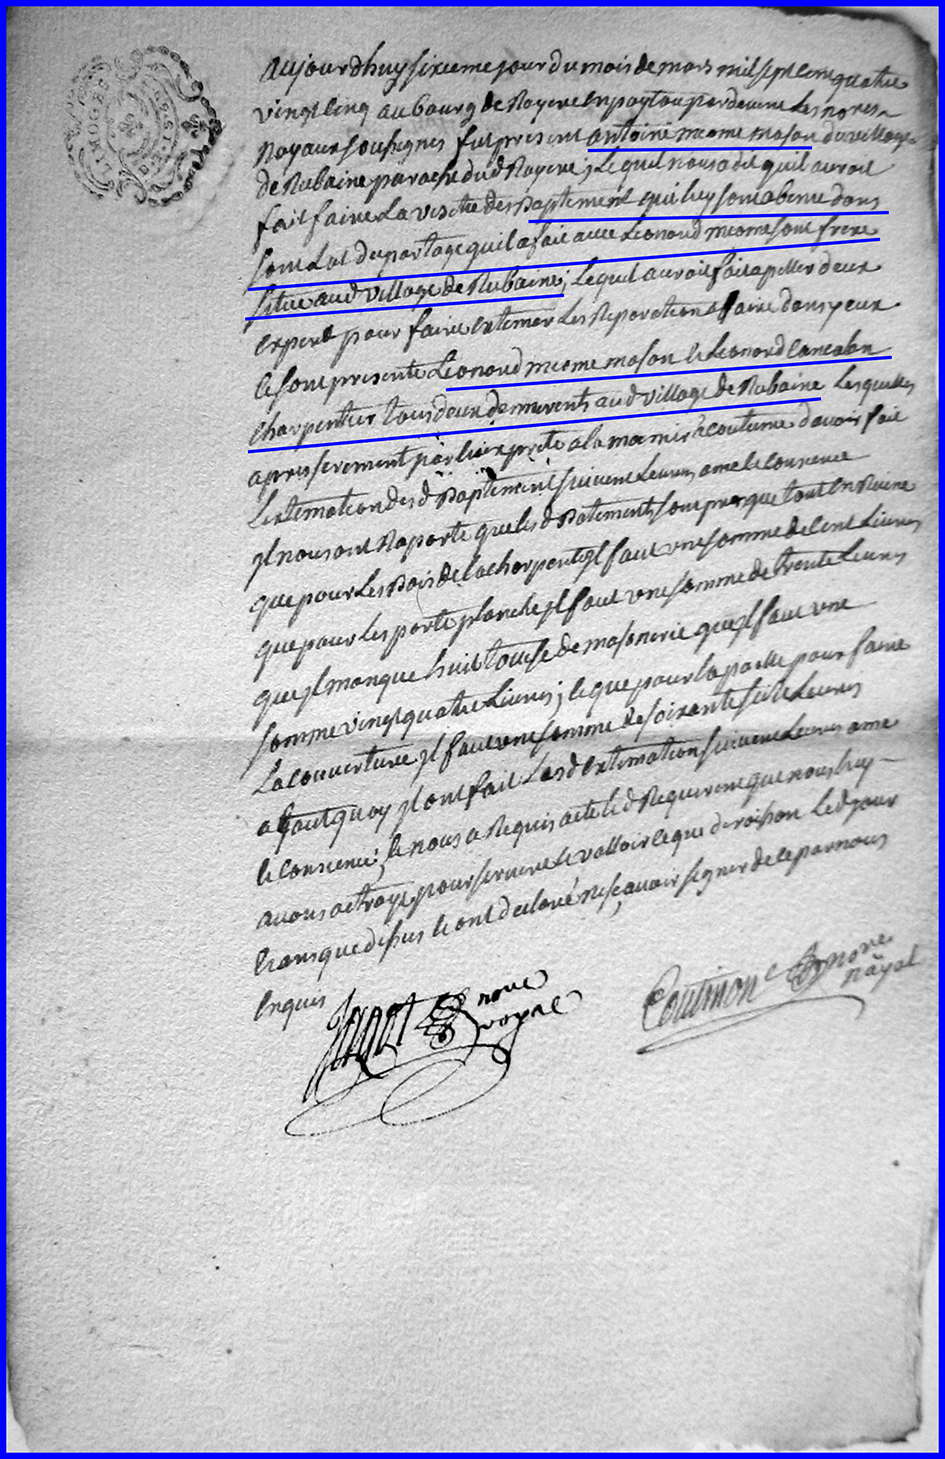 LIMOGES
aujourdhuy sixieme jour du mois de mars mil sept cent quatre
vingt cinq au bourg de Royere en poytou par devant Les nores
Royaux soussignes fut present antoine micome mason du village
de Rubaine paroche dud Royere ; Lequel nous a dit quil auroit
fait faire La visite des Baptiment qui luy sont
son Lot du partage quil a fait avec Leonard micome sont frere
situe aud village de Rubaine ; Lequel auroit fait apeller deux
expert pour faire extimer Les Reparation affaire dans yeux
le sont presente Leonard micome mason le Leonard lancalon
charpentier tous deux demeurents aud village de Rubaine Lesquelles
apres serement par heux prete a la maniere acoutume davoir fait
Lextemation des d Baptement suivent Leurs ame le consience
jl nous ont Raporte que les d Batements sont presque tout en Ruine
que pour Les Bois de la charpente jl faut une somme de cent Livres
que pour Les porte planche jl faut une somme de trente Leures
que jl manque huit touese de masonerie que jl faut une
somme vingt quatre Livres ; le que pour la paolle pour faire
La couverture jl faut une somme de soixante Leures
a quoy jl ont fait Lesd extimation suivent Leurs ame
le consience ; le nous a Requis acte le d Requerent que nous luy
avons actroye pour servire le valloir le que de raison Led jour
l que dessus le ont declare ne sçavoir signer de le par nous
enquis
nore
royal
Coutinon nore
Röyal